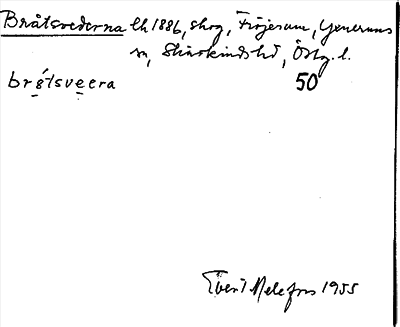 Bråtsvederna lh 1886, skog, Fröjesum, Yxnerums
sn, Skärkinds hd, Östg. l.
bråtsveera 50
Evert Melefors 1955